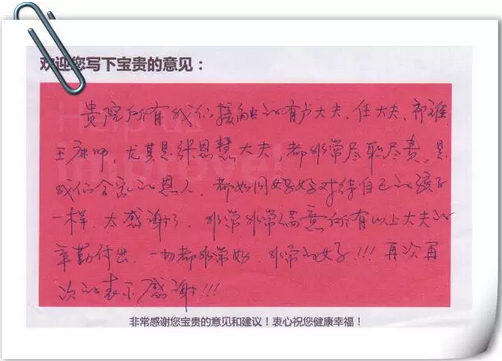 欢迎您写下宝贵的意见：
贵院所有我们接触的有大夫，任大夫，
王麻师，尤其是张思慧大夫，都非常尽职尽责，是
我们全家的恩人，都如同妈妈对待自己的孩子
一样，太感谢了，非常非常满意所有以上大夫的
辛勤付出，一切都非常好，非常的好!!!再次再
次的表示感谢!!!
非常感谢您宝贵的意见和建议！衷心祝您健康幸福！